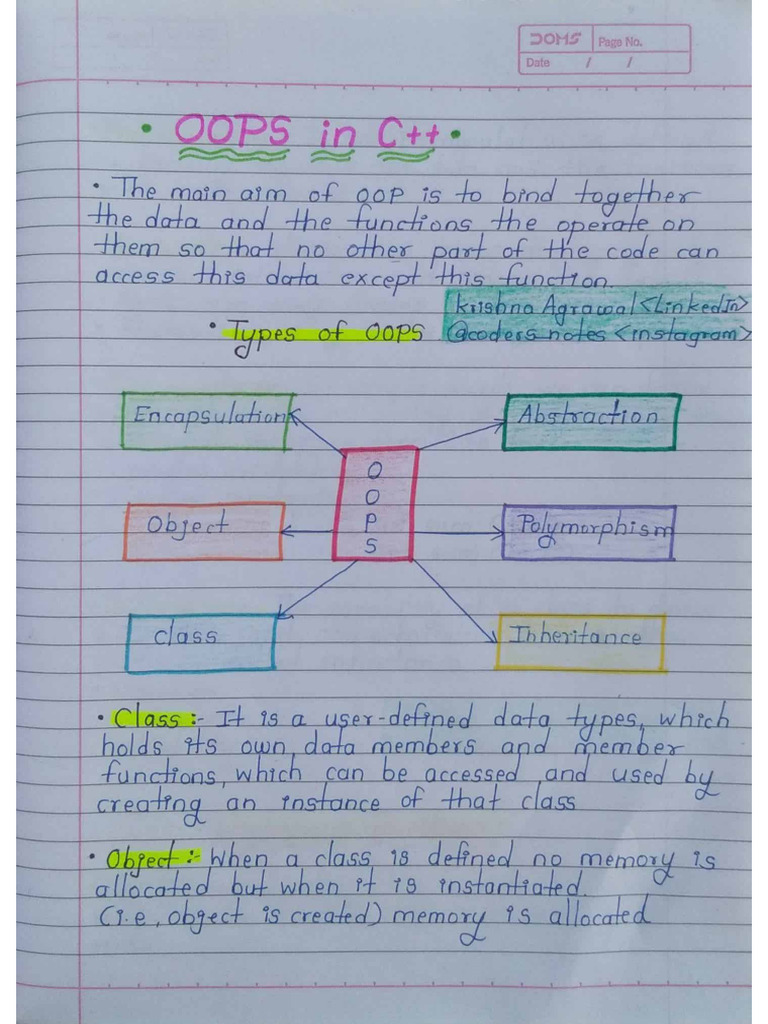 DOMS Page No.
Date / /
• OOPS in C++ •
• The main aim of OOP is to bind together
the data and the functions the operate on
them so that no other part of the code can
access this data except this function.
krishna Agrawal <LinkedIn>
• Types of OOPS @coders notes <instagram>
Encapsulation
Abstraction
OOPS
Object
Polymorphism
class
Inheritance
• Class :- It is a user-defined data types, which
holds its own data members and member
functions, which can be accessed and used by
creating an instance of that class
• Object :- When a class is defined no memory is
allocated but when it is instantiated.
(i.e, object is created) memory is allocated